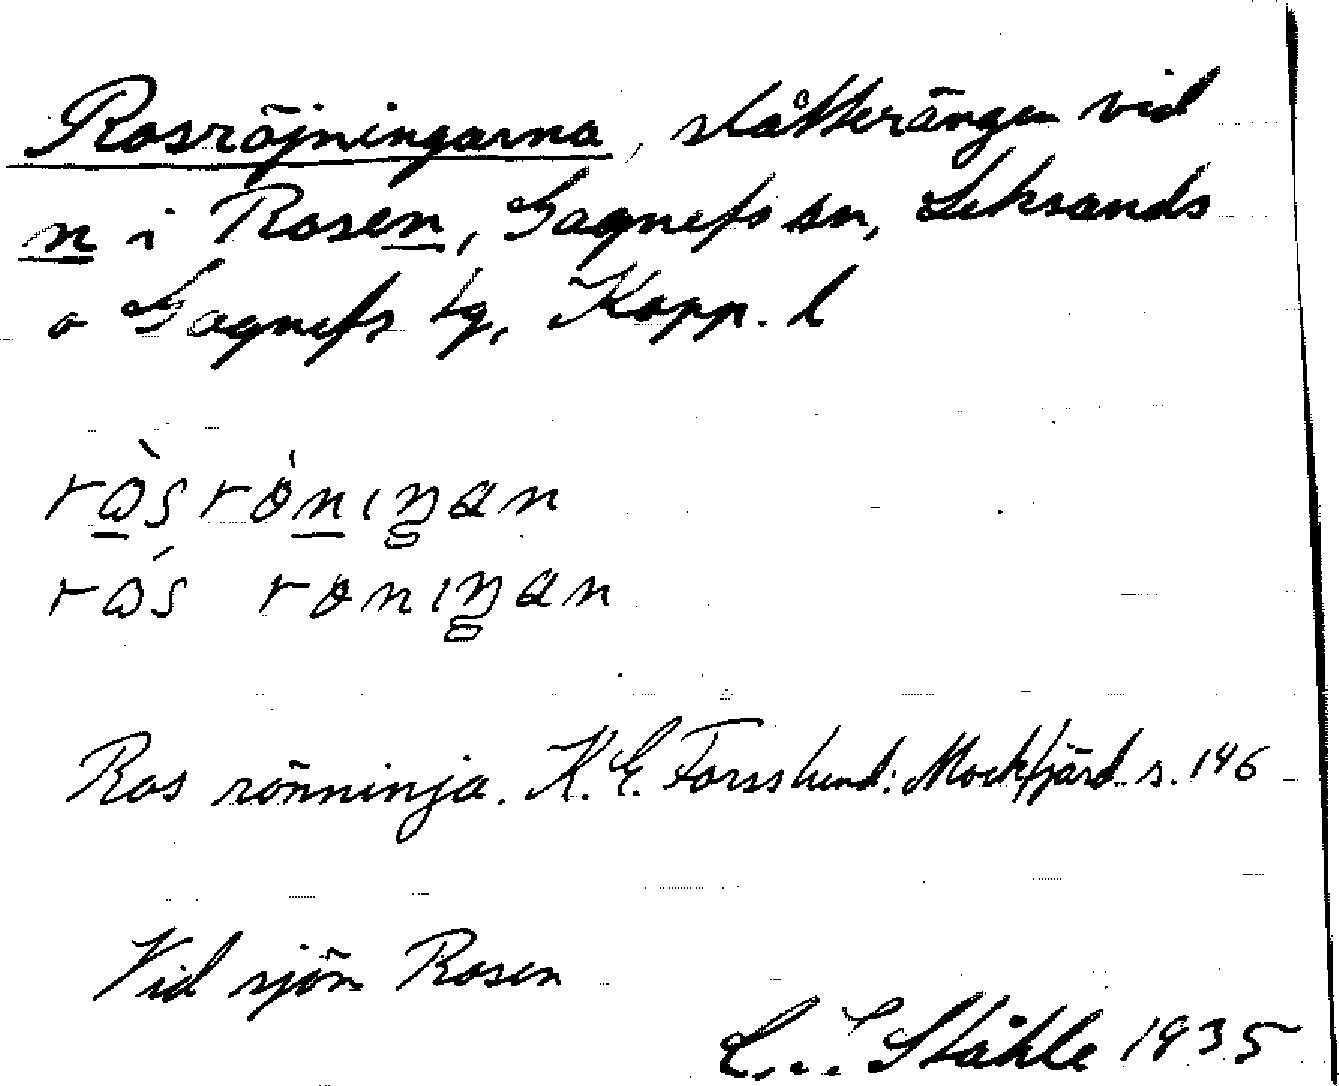 Rosröjningarna, slåtterängen vid
n i Rosen, Gagnefs sn, Leksands
o Gagnefs tg, Kopp. l
ròsrönıŋan
rós rönıŋan
Ros rönninja. K. E. Forsslund: Mockfjärd s. 146
Vid sjön Rosen
C. I. Ståhle 1935